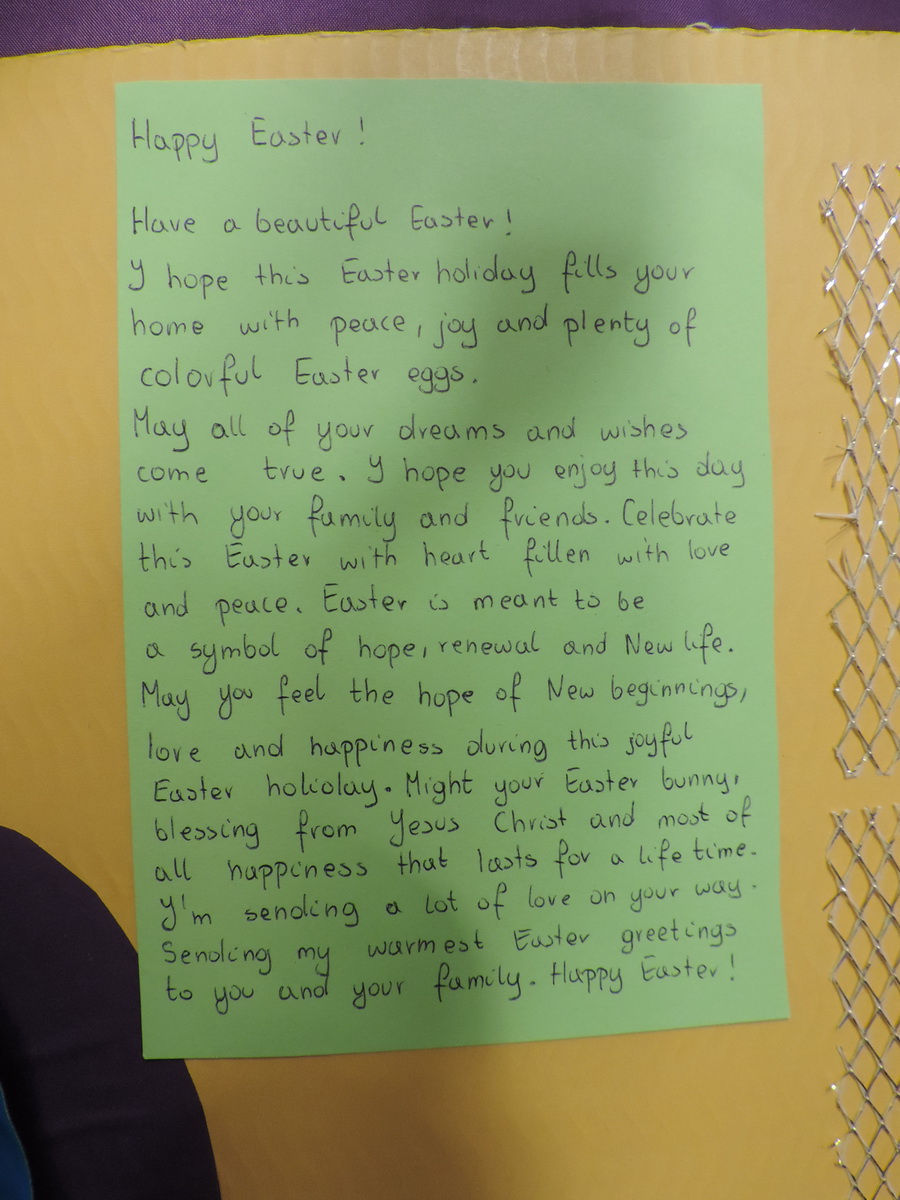 Happy Easter!
Have a beautiful Easter!
I hope this Easter holiday fills your
home with peace, joy and plenty of
colorful Easter eggs.
May all of your dreams and wishes
come true. I hope you enjoy this day
with your family and friends. Celebrate
this Easter with heart fillen with love
and peace. Easter is meant to be
a symbol of hope, renewal and New life.
May you feel the hope of New beginnings,
love and happiness during this joyful
Easter holiday. Might your Easter bunny,
blessing from Yesus Christ and most of
all happiness that lasts for a life time.
I'm sending a lot of love on your way.
Sending my warmest Easter greetings
to you and your family. Happy Easter!